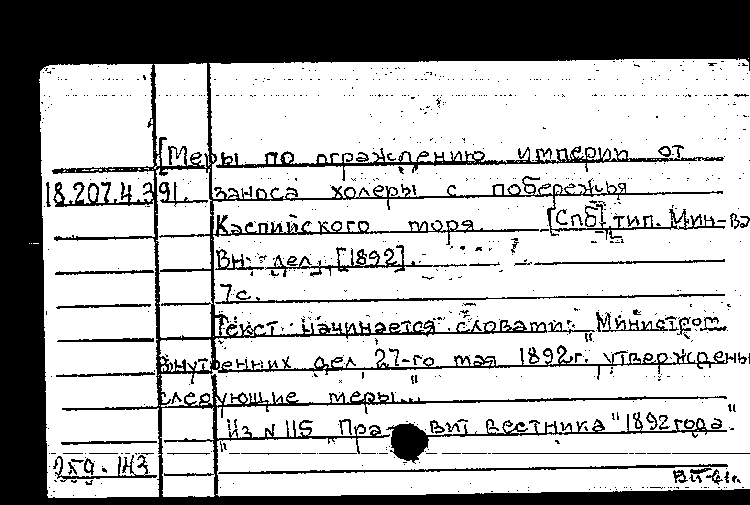 [Меры по ограждению империи от
18.207.4.391. заноса холеры с побережья
Каспийского моря. [Спб], тип. Мин-ва
Вн. дел, [1892].
7с.
Текст начинается словами: "Министром
внутренних дел 27-го мая 1892г. утверждены
следующие меры..."
"Из N 115 "Правит вестника" 1892 года".
259.143